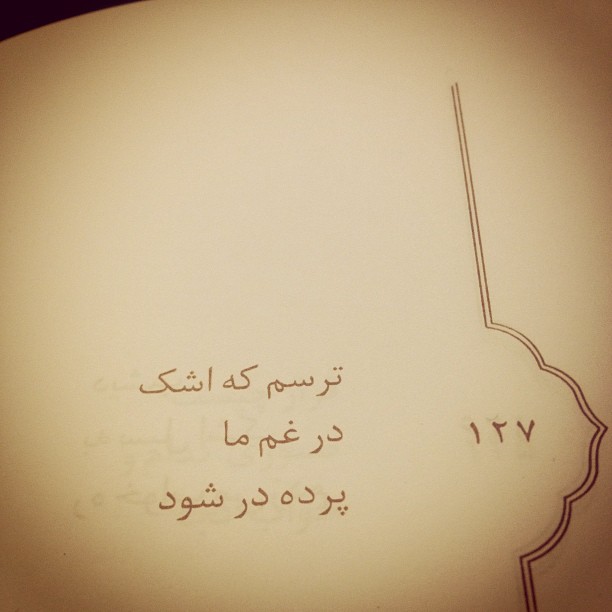 ترسم که اشک
در غم ما
۱۲۷
پرده در شود